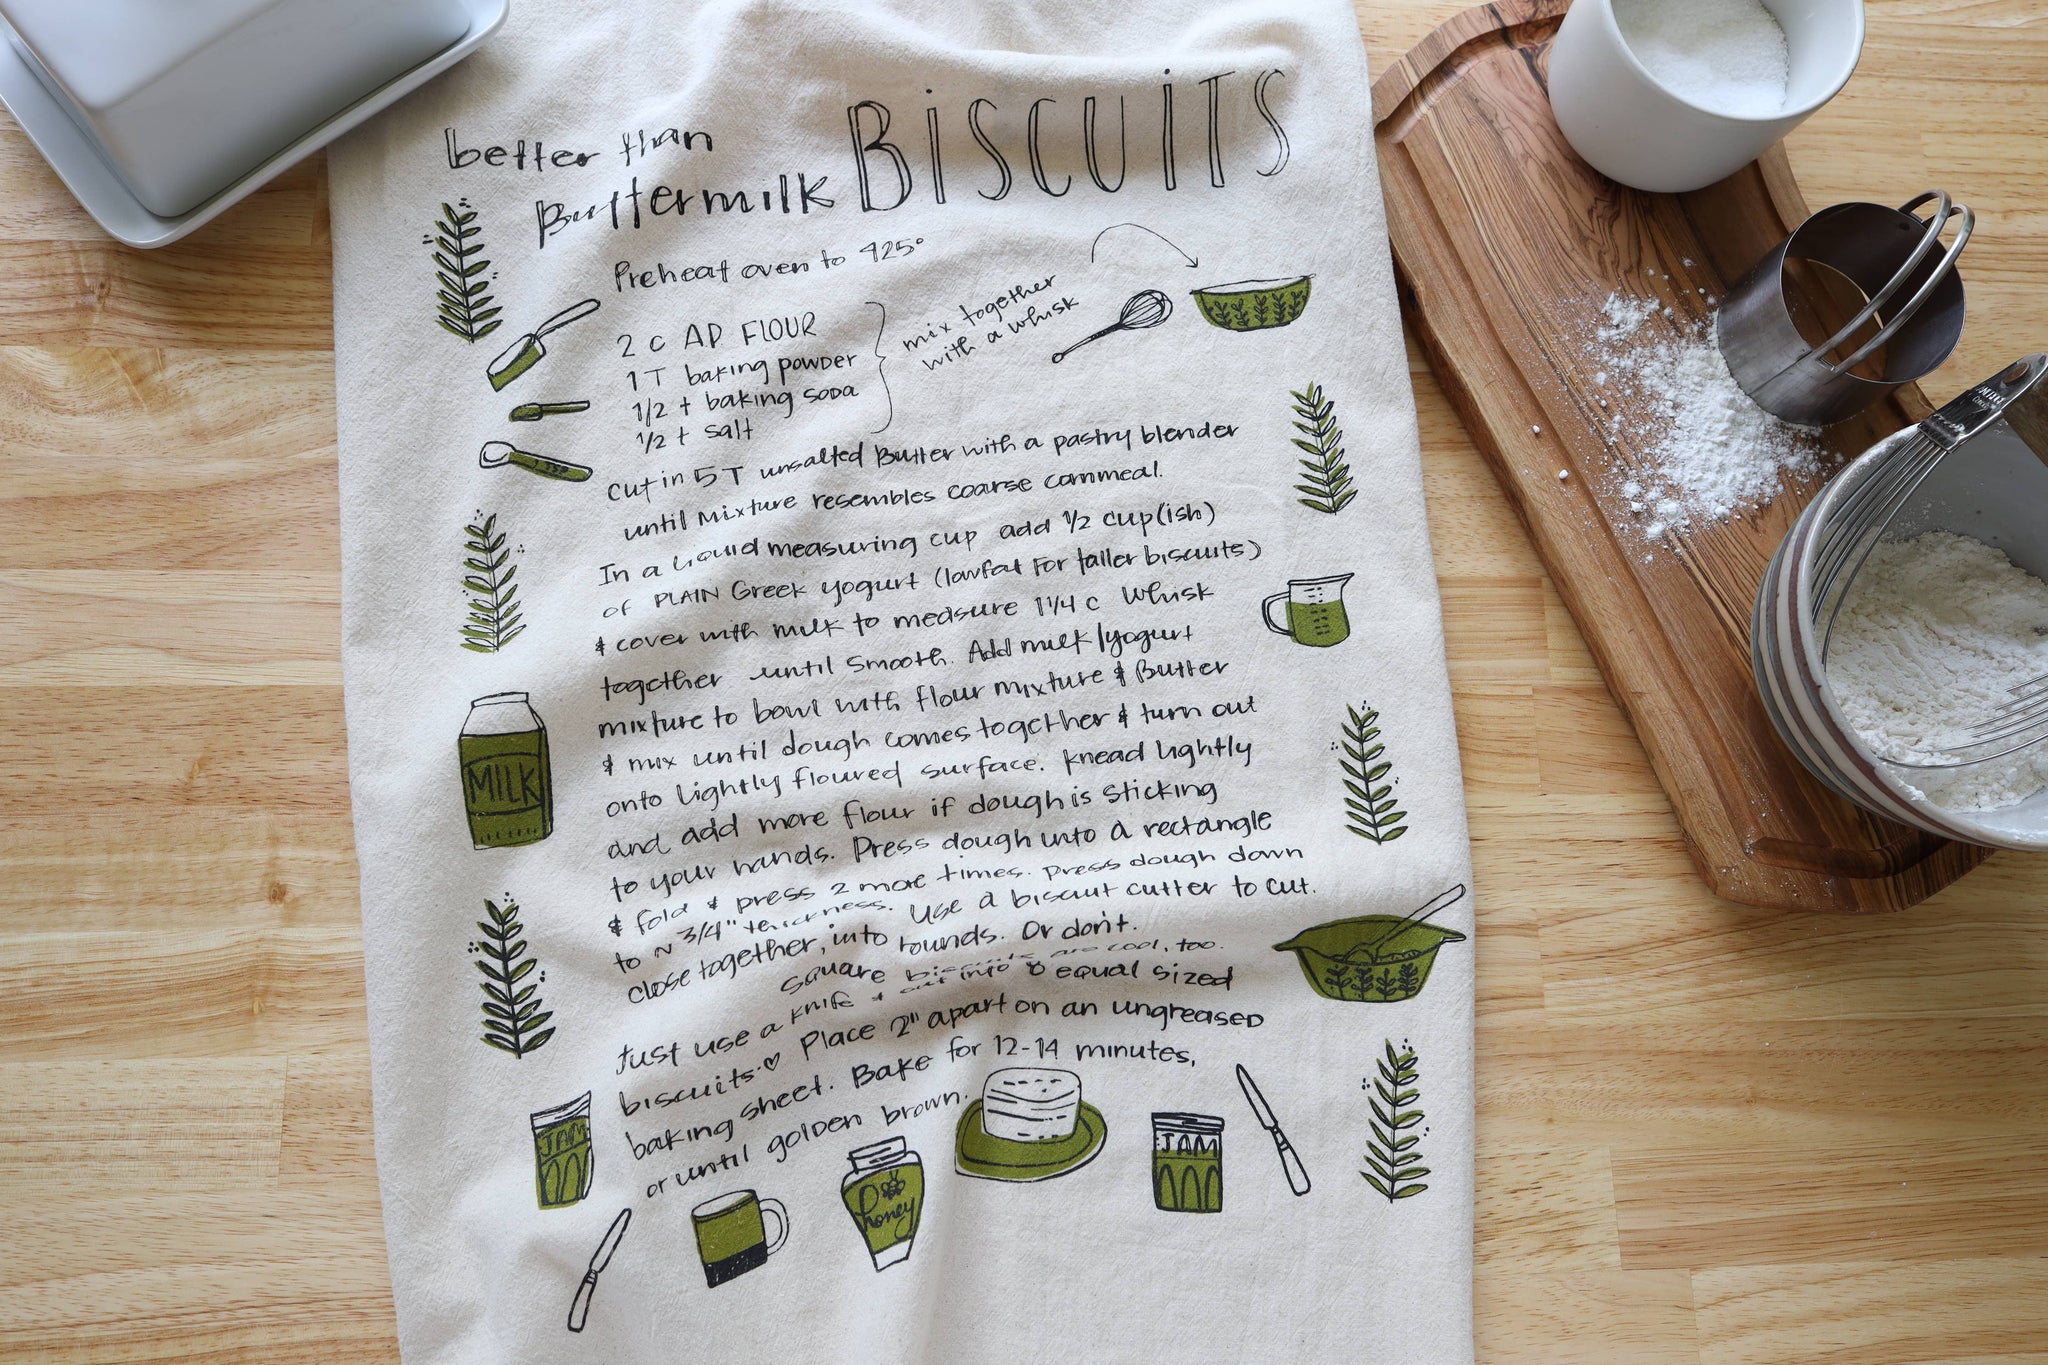 better than
Buttermilk BISCUITS
Preheat oven to 425°
2 C AP FLOUR
1 T baking powder
1/2 t baking soda
1/2 t salt
mix together
with a whisk
cut in 5 T unsalted Butter with a pastry blender
until mixture resembles coarse cornmeal.
In a liquid measuring cup add 1/2 cup(ish)
of PLAIN Greek yogurt (lowfat for taller biscuits)
& cover with milk to measure 1 1/4 c Whisk
together until smooth. Add milk/yogurt
mixture to bowl with flour mixture & Butter
& mix until dough comes together & turn out
onto lightly floured surface. Knead lightly
and add more flour if dough is sticking
to your hands. Press dough into a rectangle
& fold & press 2 more times. Press dough down
to ~ 3/4" thickness. Use a biscuit cutter to cut.
close together, into rounds. Or don't.
square biscuits are cool, too.
Just use a knife & cut into 8 equal sized
biscuits. ♡ Place 2" apart on an ungreased
baking sheet. Bake for 12-14 minutes,
or until golden brown.
MILK
JAM
honey
JAM